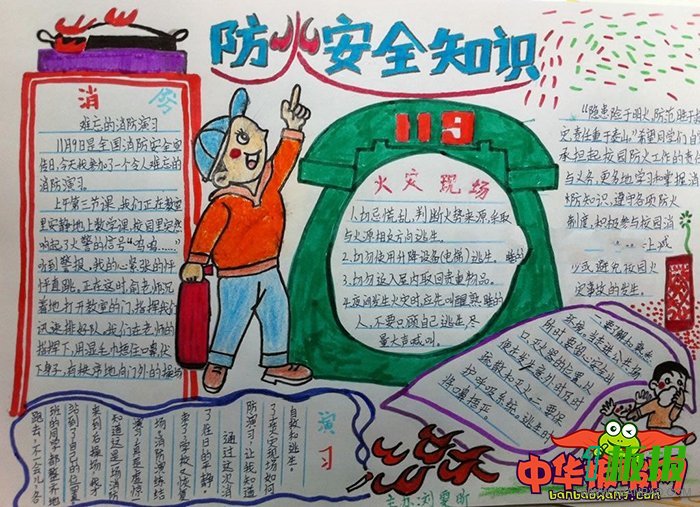 防火安全知识
消兮
难忘的消防演习
11月9日是全国消防安全宣
传日,今天校举办了一个令人难忘的
消防演习。
上午第三节课,我们正在教室
里安静地上数学课,校园里突然
响起了火警的信号“呜呜……”
听到警报,我的心紧张的怦
怦直跳。正在这时,俞老师沉
着地打开教室的门,指挥我们
迅速排好队,我们在老师的
指挥下,用湿毛巾捂住口鼻,伏
下身子,有秩序地向门外的操场
跑去,不一会儿,各
班的同学都整齐地
站到了自己的位置
来到后操场,我才
知道这是一场消防
演习真是虚惊一
场,消防演练结
束了,学校又恢复
了往日的平静。
通过这次消
防演习,让我知道
了在火灾现场如何
自救和逃生。
演习
119
火灾现场
1.切忌慌乱,判断火势来源,采取
与火源相反方向逃生。
2.切勿使用升降设备(电梯)逃生。
3.切勿返入屋内取回贵重物品。
4.夜间发生火灾时,应先叫醒熟睡的
人,不要只顾自己逃生,尽
量大声喊叫。
“隐患险于明火,防范胜于救
灾,责任重于泰山。”希望同学们
承担起校园防火工作的责
与义务,更多地学习和掌握消
防知识,遵守各项防火
制度,积极参与校园消
让我
少或避免校园火
灾事故的发生。
主办:刘雯昕
中华板报网
banbaowang.com